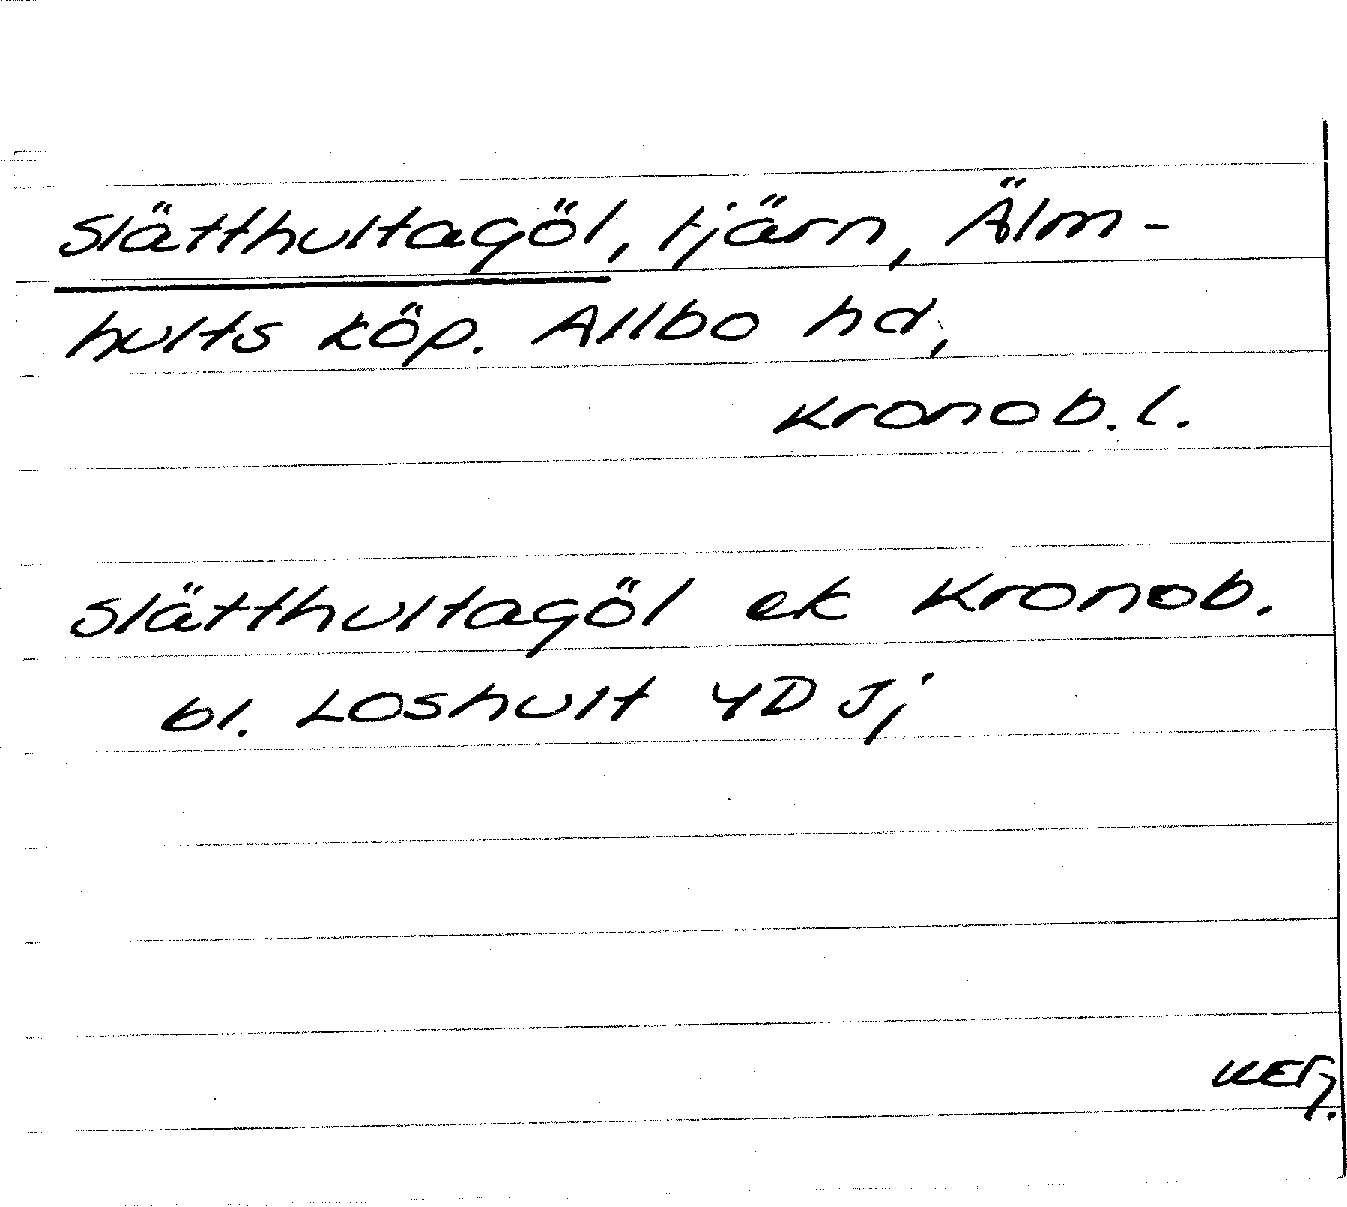 Slätthultagöl, tjärn, Älm-
hults köp. Allbo hd,
Kronob. l.
Slätthultagöl ek Kronob.
bl. Loshult 4D Jj